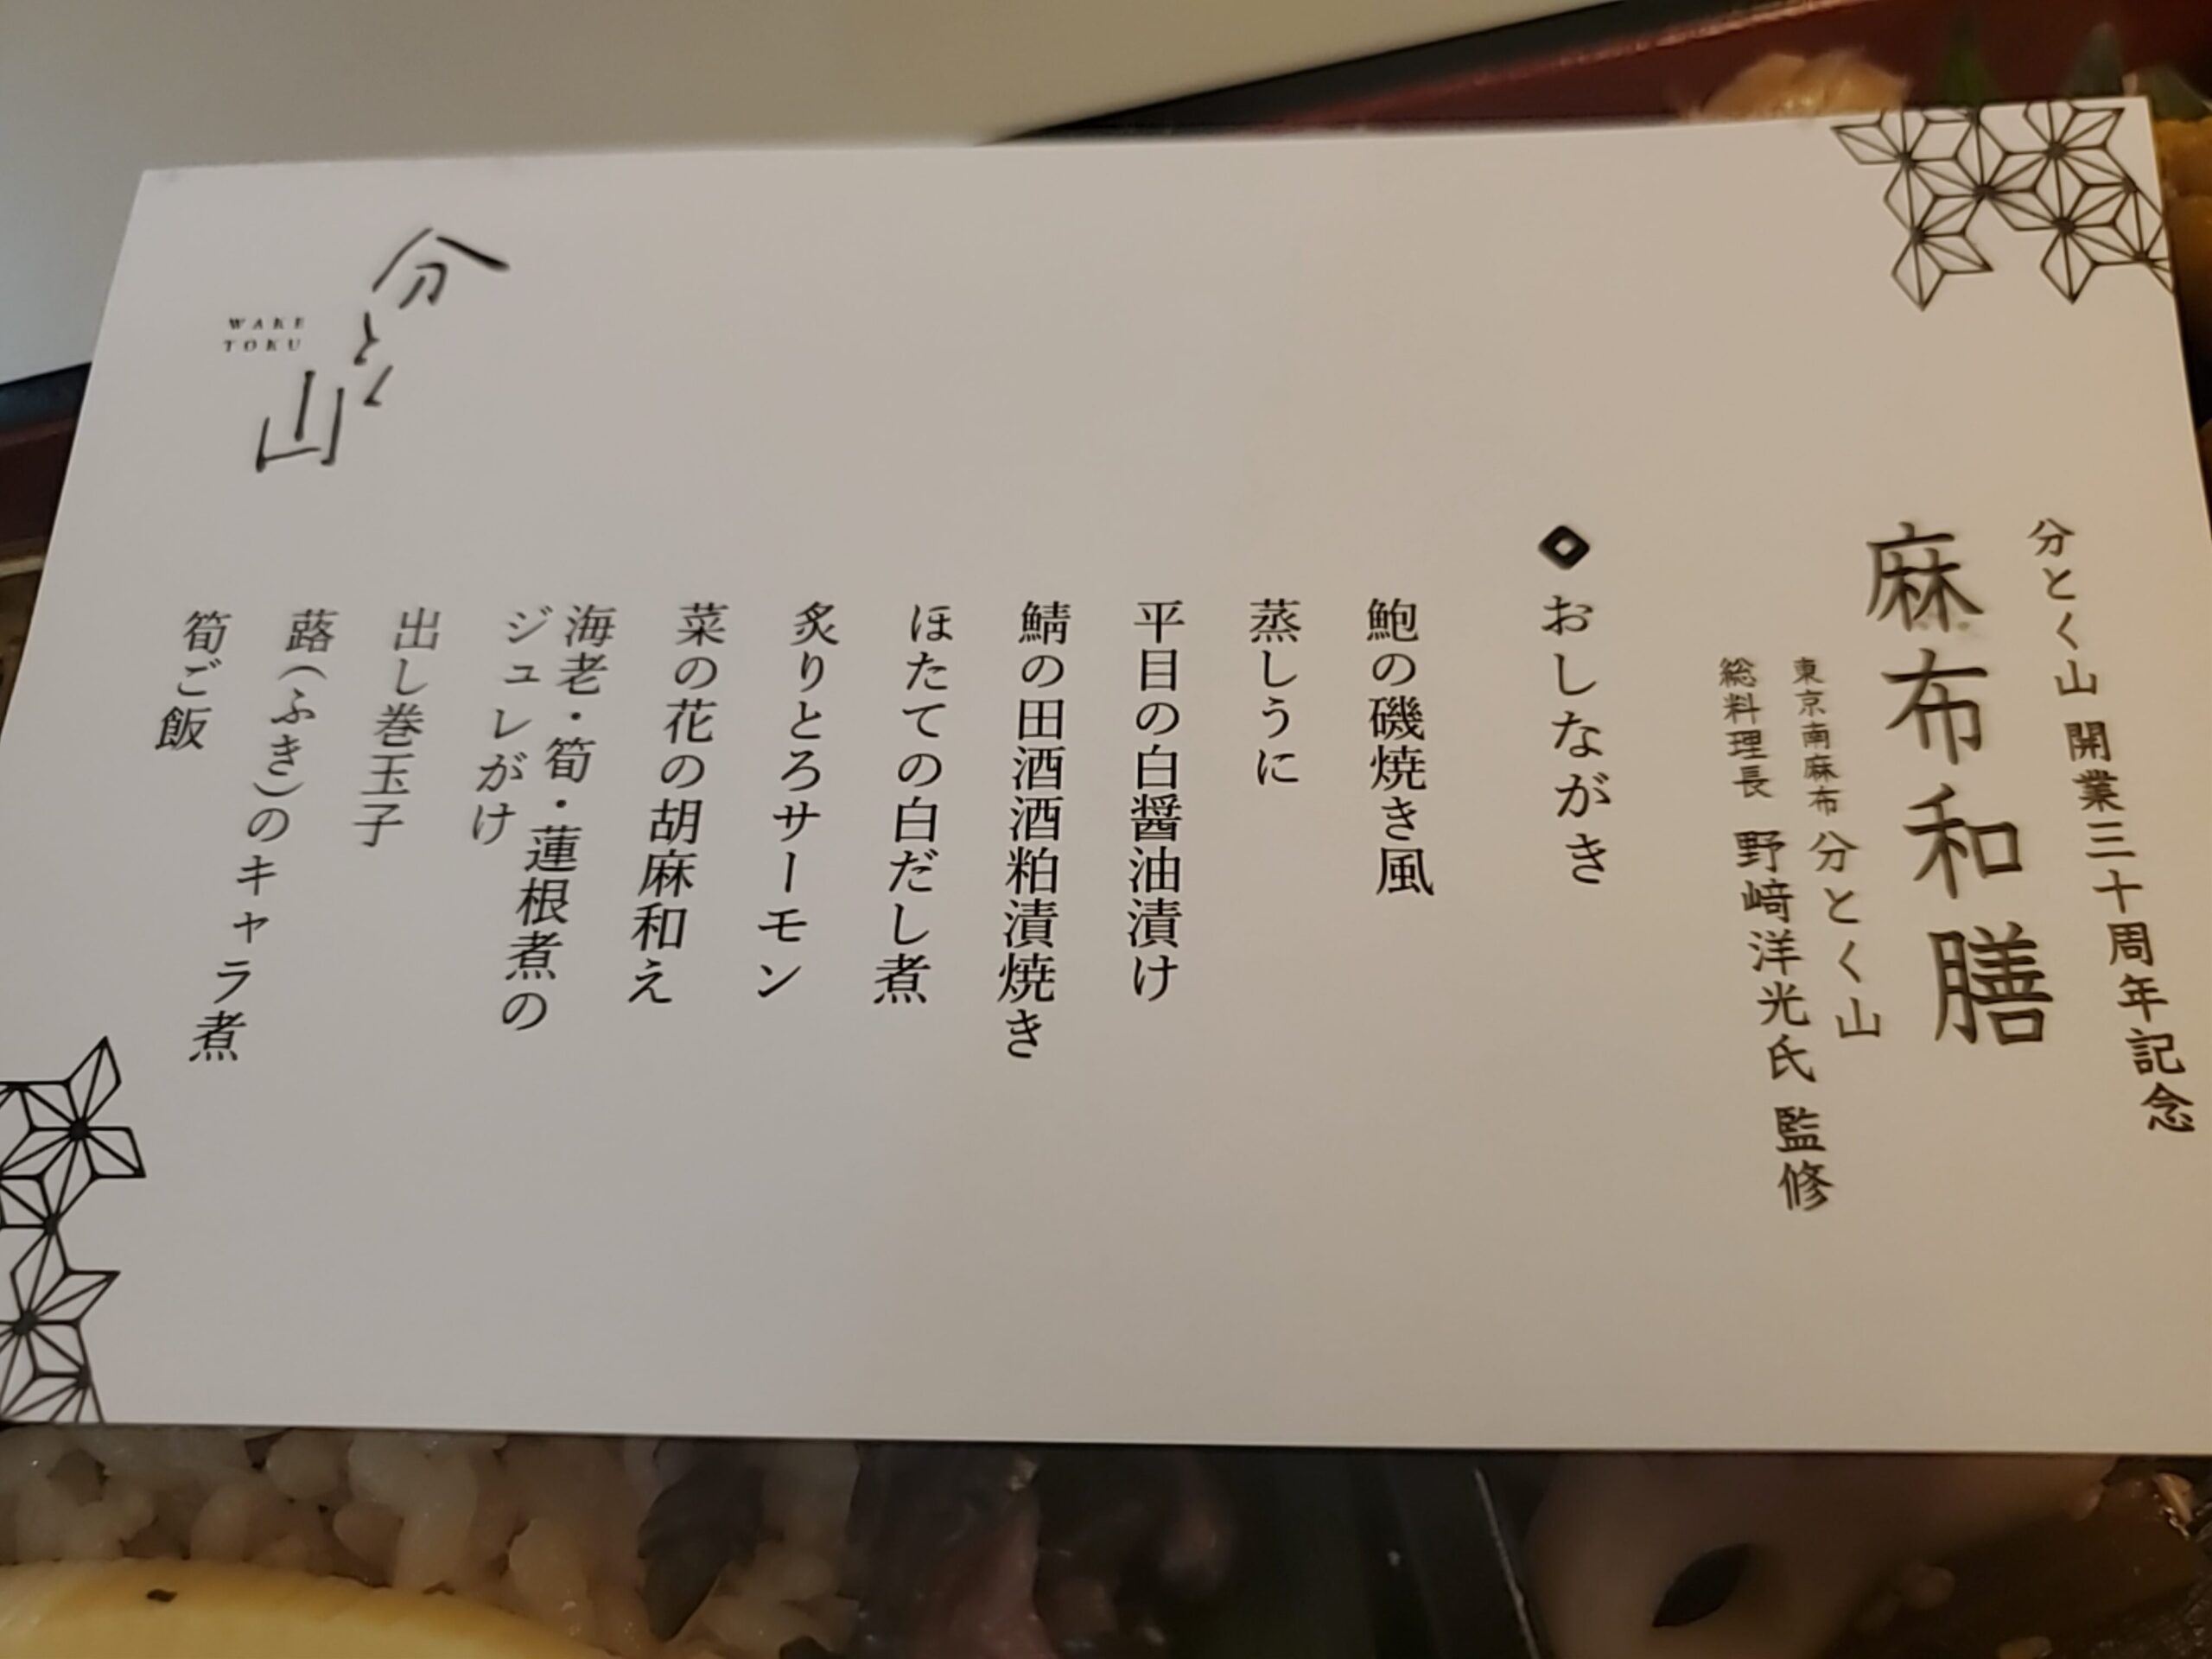 分とく山 開業三十周年記念
麻布和膳
東京南麻布 分とく山
総料理長 野﨑洋光氏 監修
おしながき
鮑の磯焼き風
蒸しうに
平目の白醤油漬け
鯖の田酒酒粕漬焼き
ほたての白だし煮
炙りとろサーモン
菜の花の胡麻和え
海老・筍・蓮根煮の
ジュレがけ
出し巻玉子
蕗(ふき)のキャラ煮
筍ご飯
分とく山
WAKE
TOKU